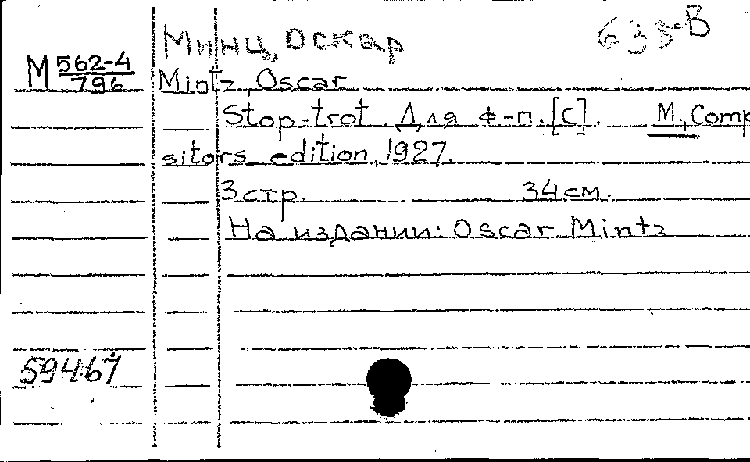 Минц, Оскар 633-В
М 562-4
796
Mintz, Oscar
Stop-trot. Для ф-п. [C]. M., Comp
sitors edition, 1927.
3 стр. 34 см.
На издании: Oscar Mintz
59467